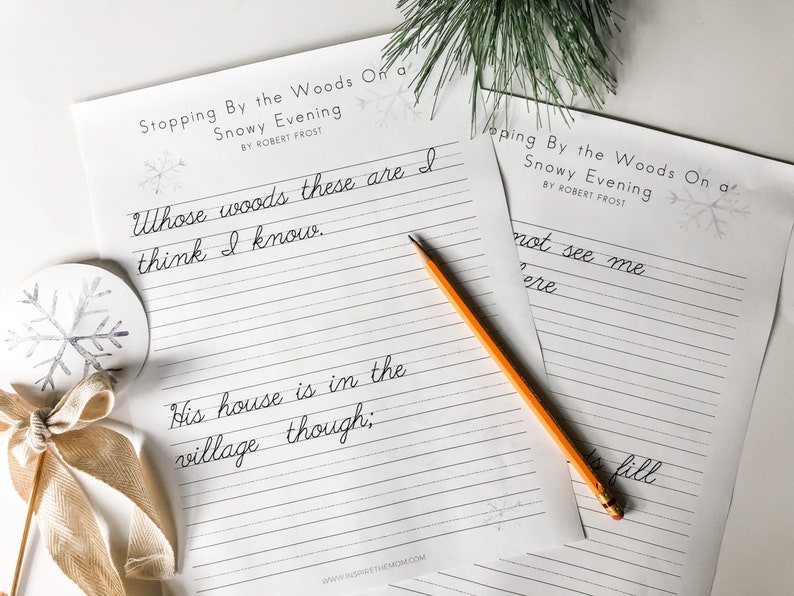 Stopping By the Woods On a
Snowy Evening
BY ROBERT FROST
Whose woods these are I
think I know.
His house is in the
village though;
WWW.INSPIRETHEMOM.COM
By the Woods On a
Snowy Evening
BY ROBERT FROST
not see me
fill